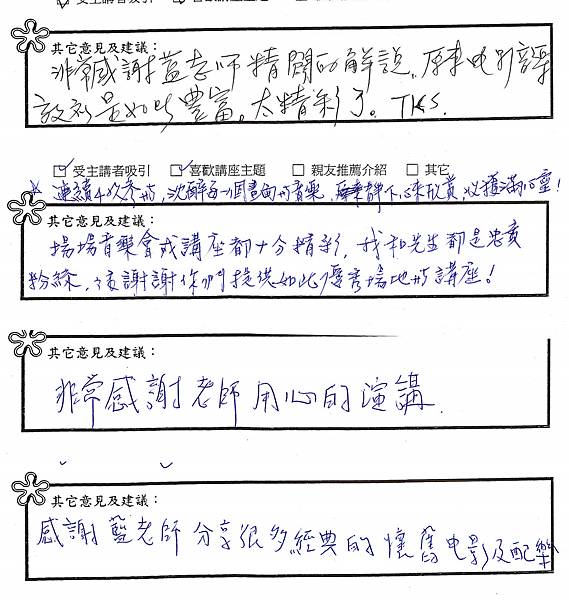 受主講者吸引 喜歡講座主題
其它意見及建議：
非常感謝藍老師精闢的解說，原來电影音樂
故祘是如此豐富。太精彩了。TKS.
受主講者吸引 喜歡講座主題 親友推薦介紹 其它
連續4次参加，沈醉每一個畫面的音樂，靜下心來欣賞，收穫滿心靈！
其它意見及建議：
場場音樂會或講座都十分精彩，我和先生都是忠實
粉絲，謝謝你們提供如此優秀場地的講座！
其它意見及建議：
非常感謝老師用心的演講.
其它意見及建議：
感謝藍老師分享很多經典的懷舊电影及配樂